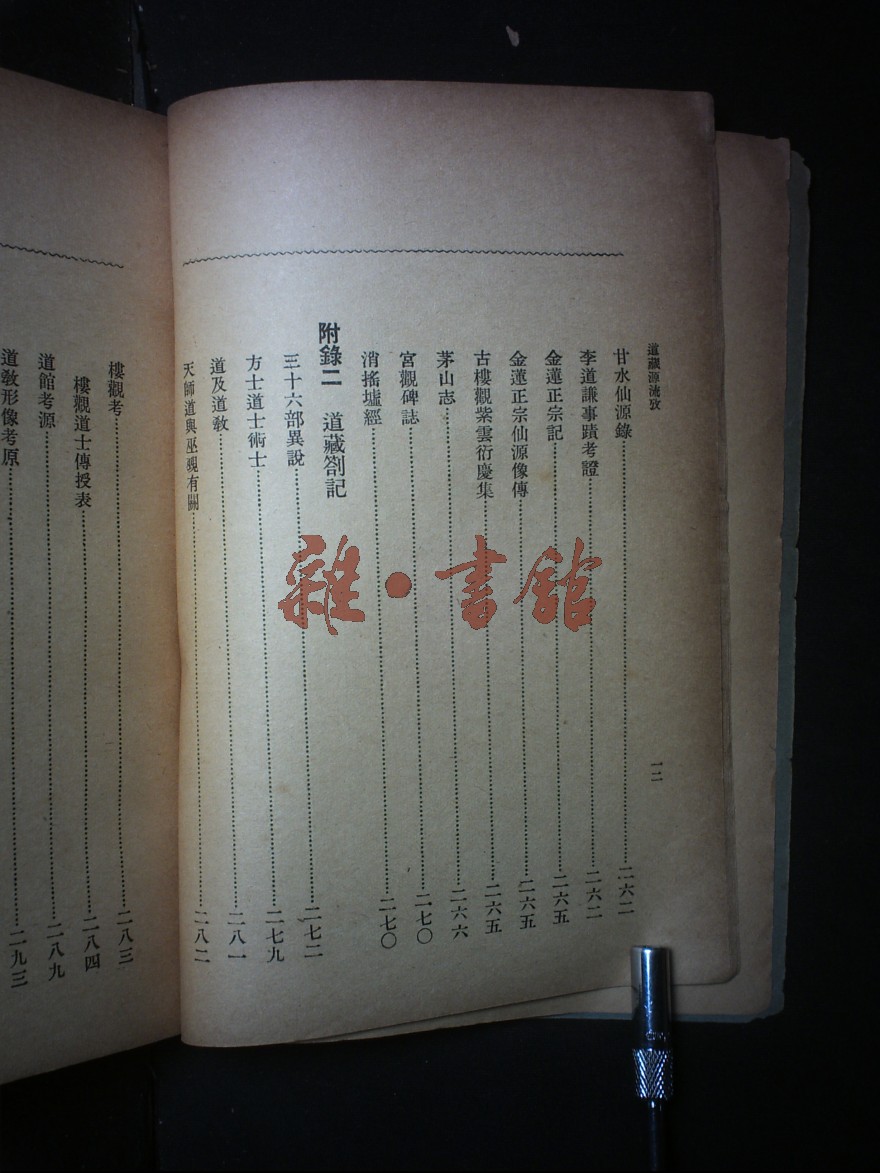 道藏源流攷
一二
甘水仙源錄……二六二
李道謙事蹟考證……二六二
金蓮正宗記……二六五
金蓮正宗仙源像傳……二六五
古樓觀紫雲衍慶集……二六五
茅山志……二六六
宮觀碑誌……二七〇
消搖墟經……二七〇
附錄二　道藏劄記
三十六部異說……二七二
方士道士術士……二七九
道及道敎……二八一
天師道與巫覡有關……二八二
樓觀考……二八三
樓觀道士傳授表……二八四
道館考源……二八九
道敎形像考原……二九三
雜·書館